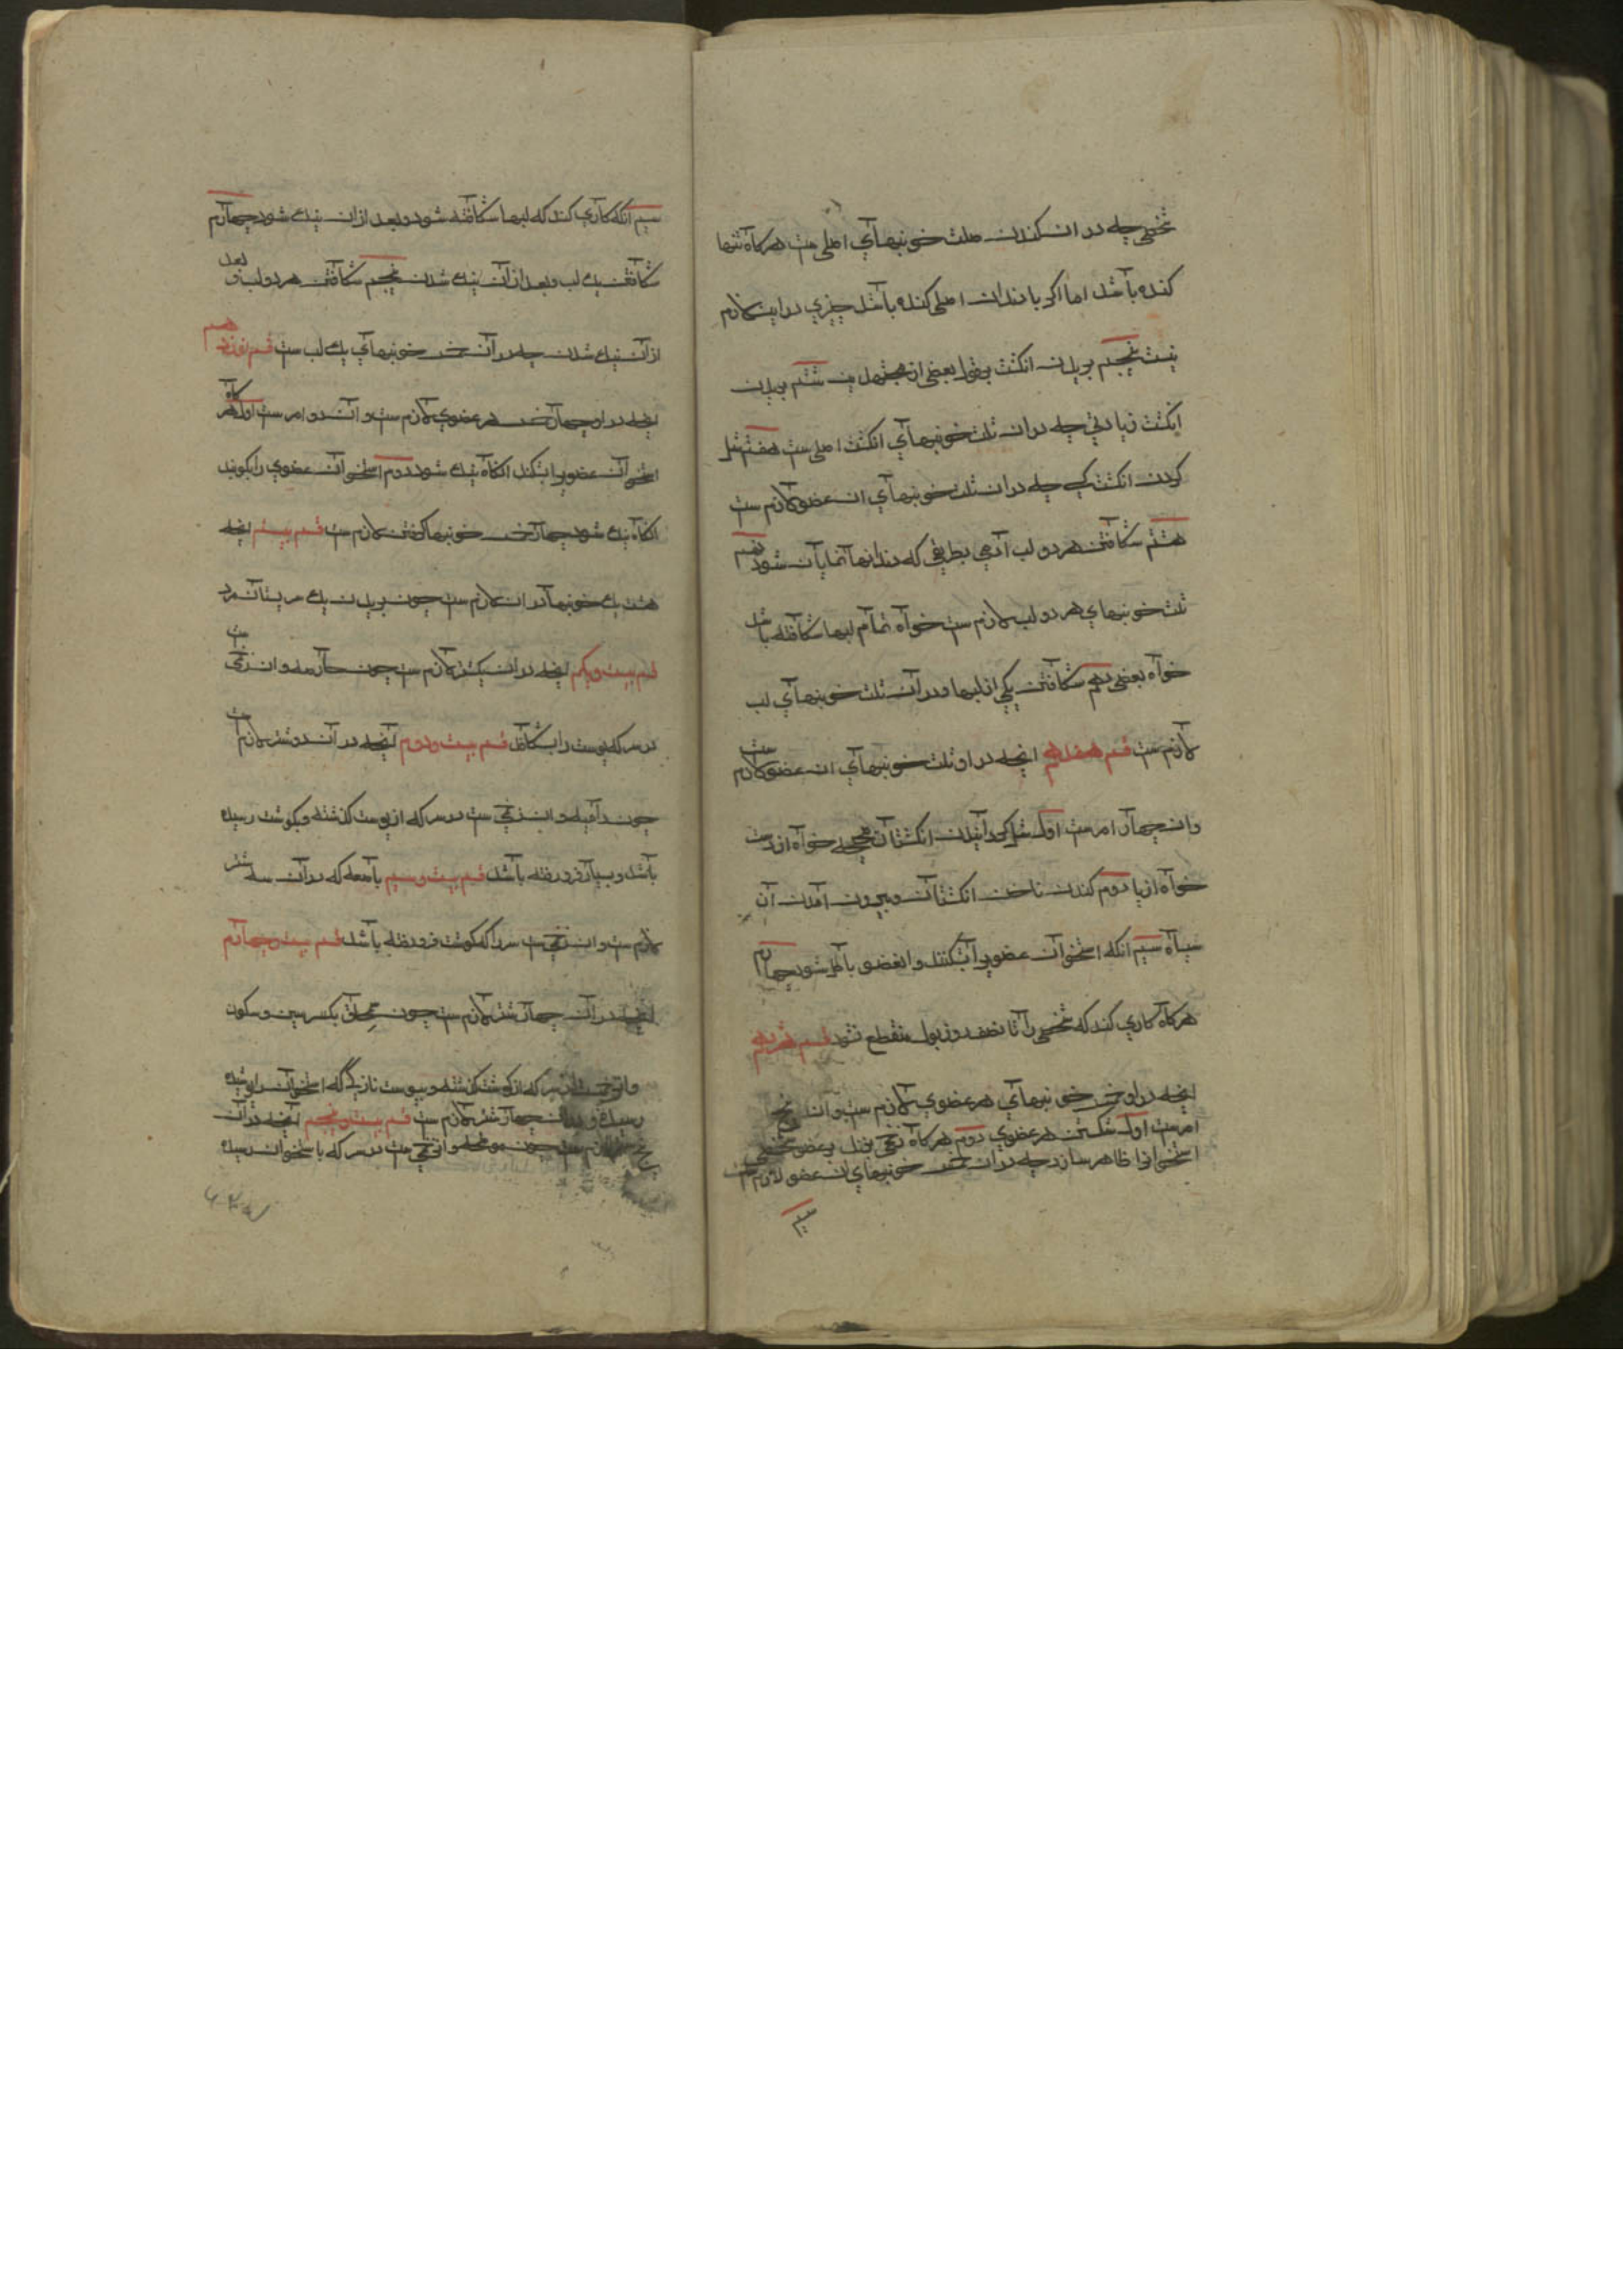 شخصی چه در ان کندن ثلث خونبهای اصلی ست هرکاه تنها
کنده باشد اما اکر با دندان اصلی کنده باشد چیزی در این لازم
نیست پنجم بریدن انکشت بقول بعضی از مجتهدین ششم بریدن
انکشت زیادتی چه در ان ثلث خونبهای انکشت اصلی ست هفتم شل
کردن انکشت کسی چه در ان ثلث خونبهای ان عضو لازم ست
هشتم شکافتن هر دو لب آدمی بطریقی که دندانها نمایان شود نهم
ثلث خونبهای هر دو لب لازم ست خواه تمام لبها شکافته باشد
خواه بعضی دهم شکافتن یکی از لبها و در آن ثلث خونبهای لب
لازم ست قسم هفدهم انچه در او ثلث خونبهای ان عضو لازم ست
وان چهار امرست اول شل کردانیدن انکشتان خواه از دست
خواه از پا دوم کندن ناخن انکشتان و بیرون آمدن آن
سیاه سیم انکه استخوان عضویرا بشکنند و انعضو باطل شود چهارم
هرکاه کاری کند که شخصی را تا نصف روز بول منقطع نشود قسم هژدهم
انچه در او خمس خونبهای هر عضوی لازم ست و آن پنج
امرست اول شکستن هر عضوی دوم هرکاه زخمی بزند بر عضو شخصی
استخوانرا ظاهر سازد چه در ان خمس خونبهای ان عضو لازم ست
سیم
سیم انکه کاری کند که لبها شکافته شود و بعد از ان نیک شود چهارم
شکافتن یک لب و بعد از آن نیک شدن پنجم شکافتن هر دو لب و بعد
از آن نیک شدن چه در آن خمس خونبهای یک لب ست قسم نوزدهم
انچه در او چهار خمس هر عضوی لازم ست و آن دو امر ست اول هرکاه
استخوان عضویرا بشکند انکاه نیک شود دوم استخوان عضوی را بکوبند
انکاه نیک شود چهار خمس خونبها کوفتن لازم ست قسم بیستم انچه
هشت یک خونبها در ان لازم ست چون بریدن یک سر پستان مرد
قسم بیست و یکم انچه در ان یک شتر لازم ست چون حارصه و ان زخمی ست
در سر که پوست را بشکافد قسم بیست و دوم انچه در آن دو شتر لازم ست
چون دامیه و ان زخمی ست در سر که از پوست کذشته و بکوشت رسیده
باشد و بسیار فرو رفته باشد قسم بیست و سیم باضعه که در آن سه شتر
لازم ست و ان زخمی ست سر را که کوشت فرو رفته باشد قسم بیست و چهارم
انچه در آن چهار شتر لازم ست چون سمحاق بکسر سین و سکون
در سر که از کوشت کذشته و بپوست نازکی که استخوان را پوشیده
رسیده و در ان چهار شتر لازم ست قسم بیست و پنجم انچه در آن
پنج شتر لازم ست چون موضحه و ان زخمی ست در سر که باستخوان رسیده